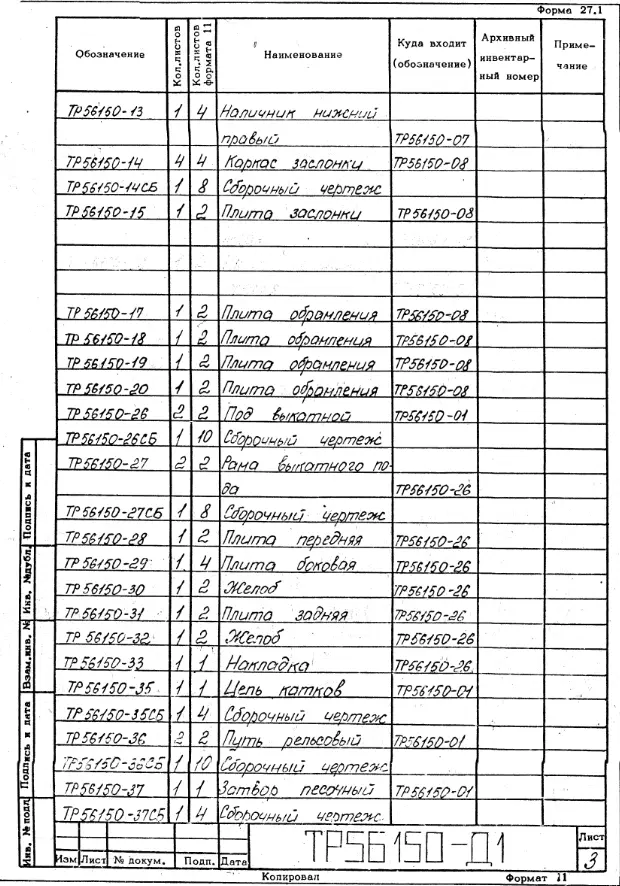 Форма 27.1
Обозначение Кол.листов Кол.листов формата 11 Наименование Куда входит (обозначение) Архивный инвентарный номер Примечание
ТР56150-13 1 4 Наличник нижний
правый ТР56150-07
ТР56150-14 4 4 Каркас заслонки ТР56150-08
ТР56150-14СБ 1 8 Сборочный чертеж
ТР56150-15 1 2 Плита заслонки ТР56150-08
ТР56150-17 1 2 Плита обрамления ТР56150-08
ТР56150-18 1 2 Плита обрамления ТР56150-08
ТР56150-19 1 2 Плита обрамления ТР56150-08
ТР56150-20 1 2 Плита обрамления ТР56150-08
ТР56150-26 2 2 Под выкатной ТР56150-01
ТР56150-26СБ 1 10 Сборочный чертеж
ТР56150-27 2 2 Рама выкатного по-
да ТР56150-26
ТР56150-27СБ 1 8 Сборочный чертеж
ТР56150-28 1 2 Плита передняя ТР56150-26
ТР56150-29 1 4 Плита боковая ТР56150-26
ТР56150-30 1 2 Желоб ТР56150-26
ТР56150-31 1 2 Плита задняя ТР56150-26
ТР56150-32 1 2 Желоб ТР56150-26
ТР56150-33 1 1 Накладка ТР56150-26
ТР56150-35 1 1 Цепь катков ТР56150-01
ТР56150-35СБ 1 4 Сборочный чертеж
ТР56150-36 2 2 Путь рельсовый ТР56150-01
ТР56150-36СБ 1 10 Сборочный чертеж
ТР56150-37 1 1 Затвор песочный ТР56150-01
ТР56150-37СБ 1 4 Сборочный чертеж
Подпись и дата
Инв. №дубл.
Взам.инв. №
Подпись и дата
Инв. №подл
Изм Лист № докум. Подп. Дата
ТР56150-Д1
Лист
3
Копировал Формат 11